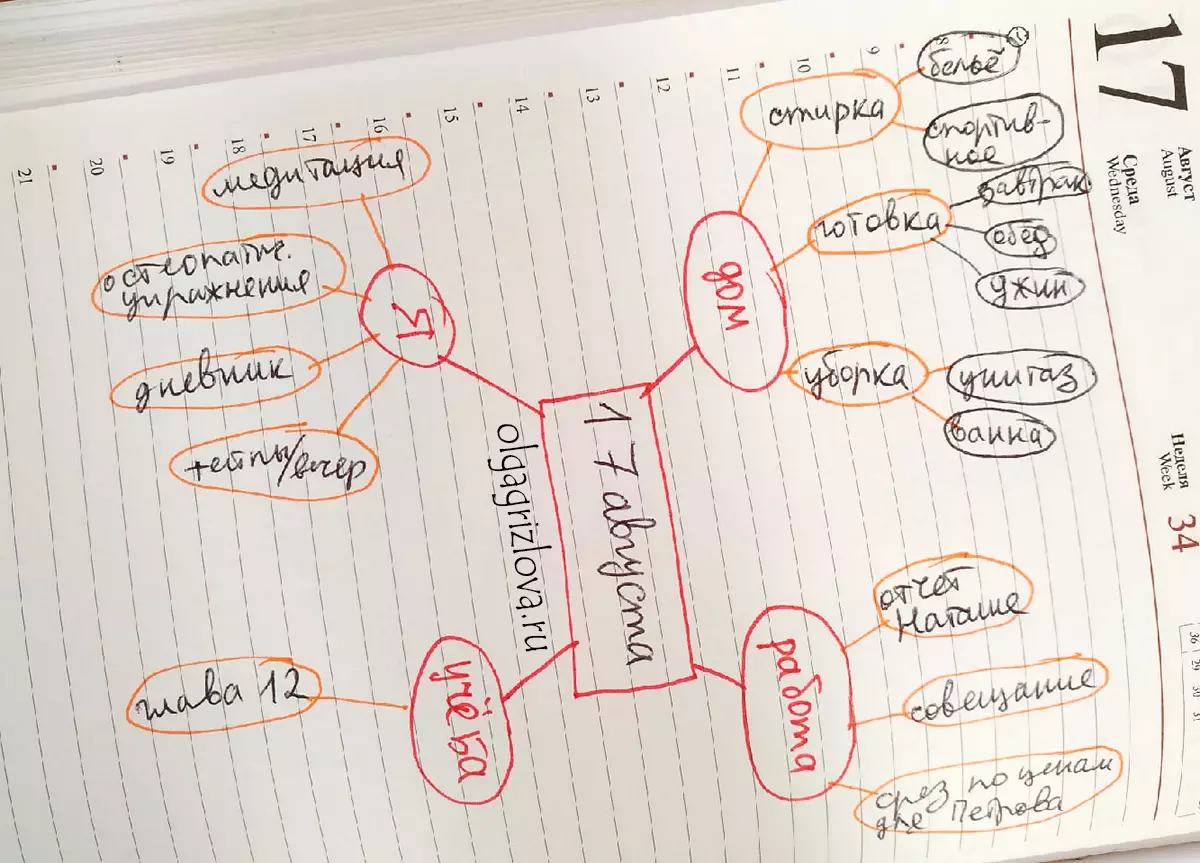 17
Август
August
Среда
Wednesday
Неделя
Week
34
8
9
10
11
12
13
14
15
16
17
18
19
20
21
17 августа
дом
стирка
бельё
спортив-
ное
готовка
завтрак
обед
ужин
уборка
унитаз
ванна
работа
отчет
Наташе
совещание
срез по ценам
для Петрова
учёба
глава 12
Я
медитация
остеопатич.
упражнения
дневник
тейпы/вечер
olgagrizlova.ru
36 29 30 31